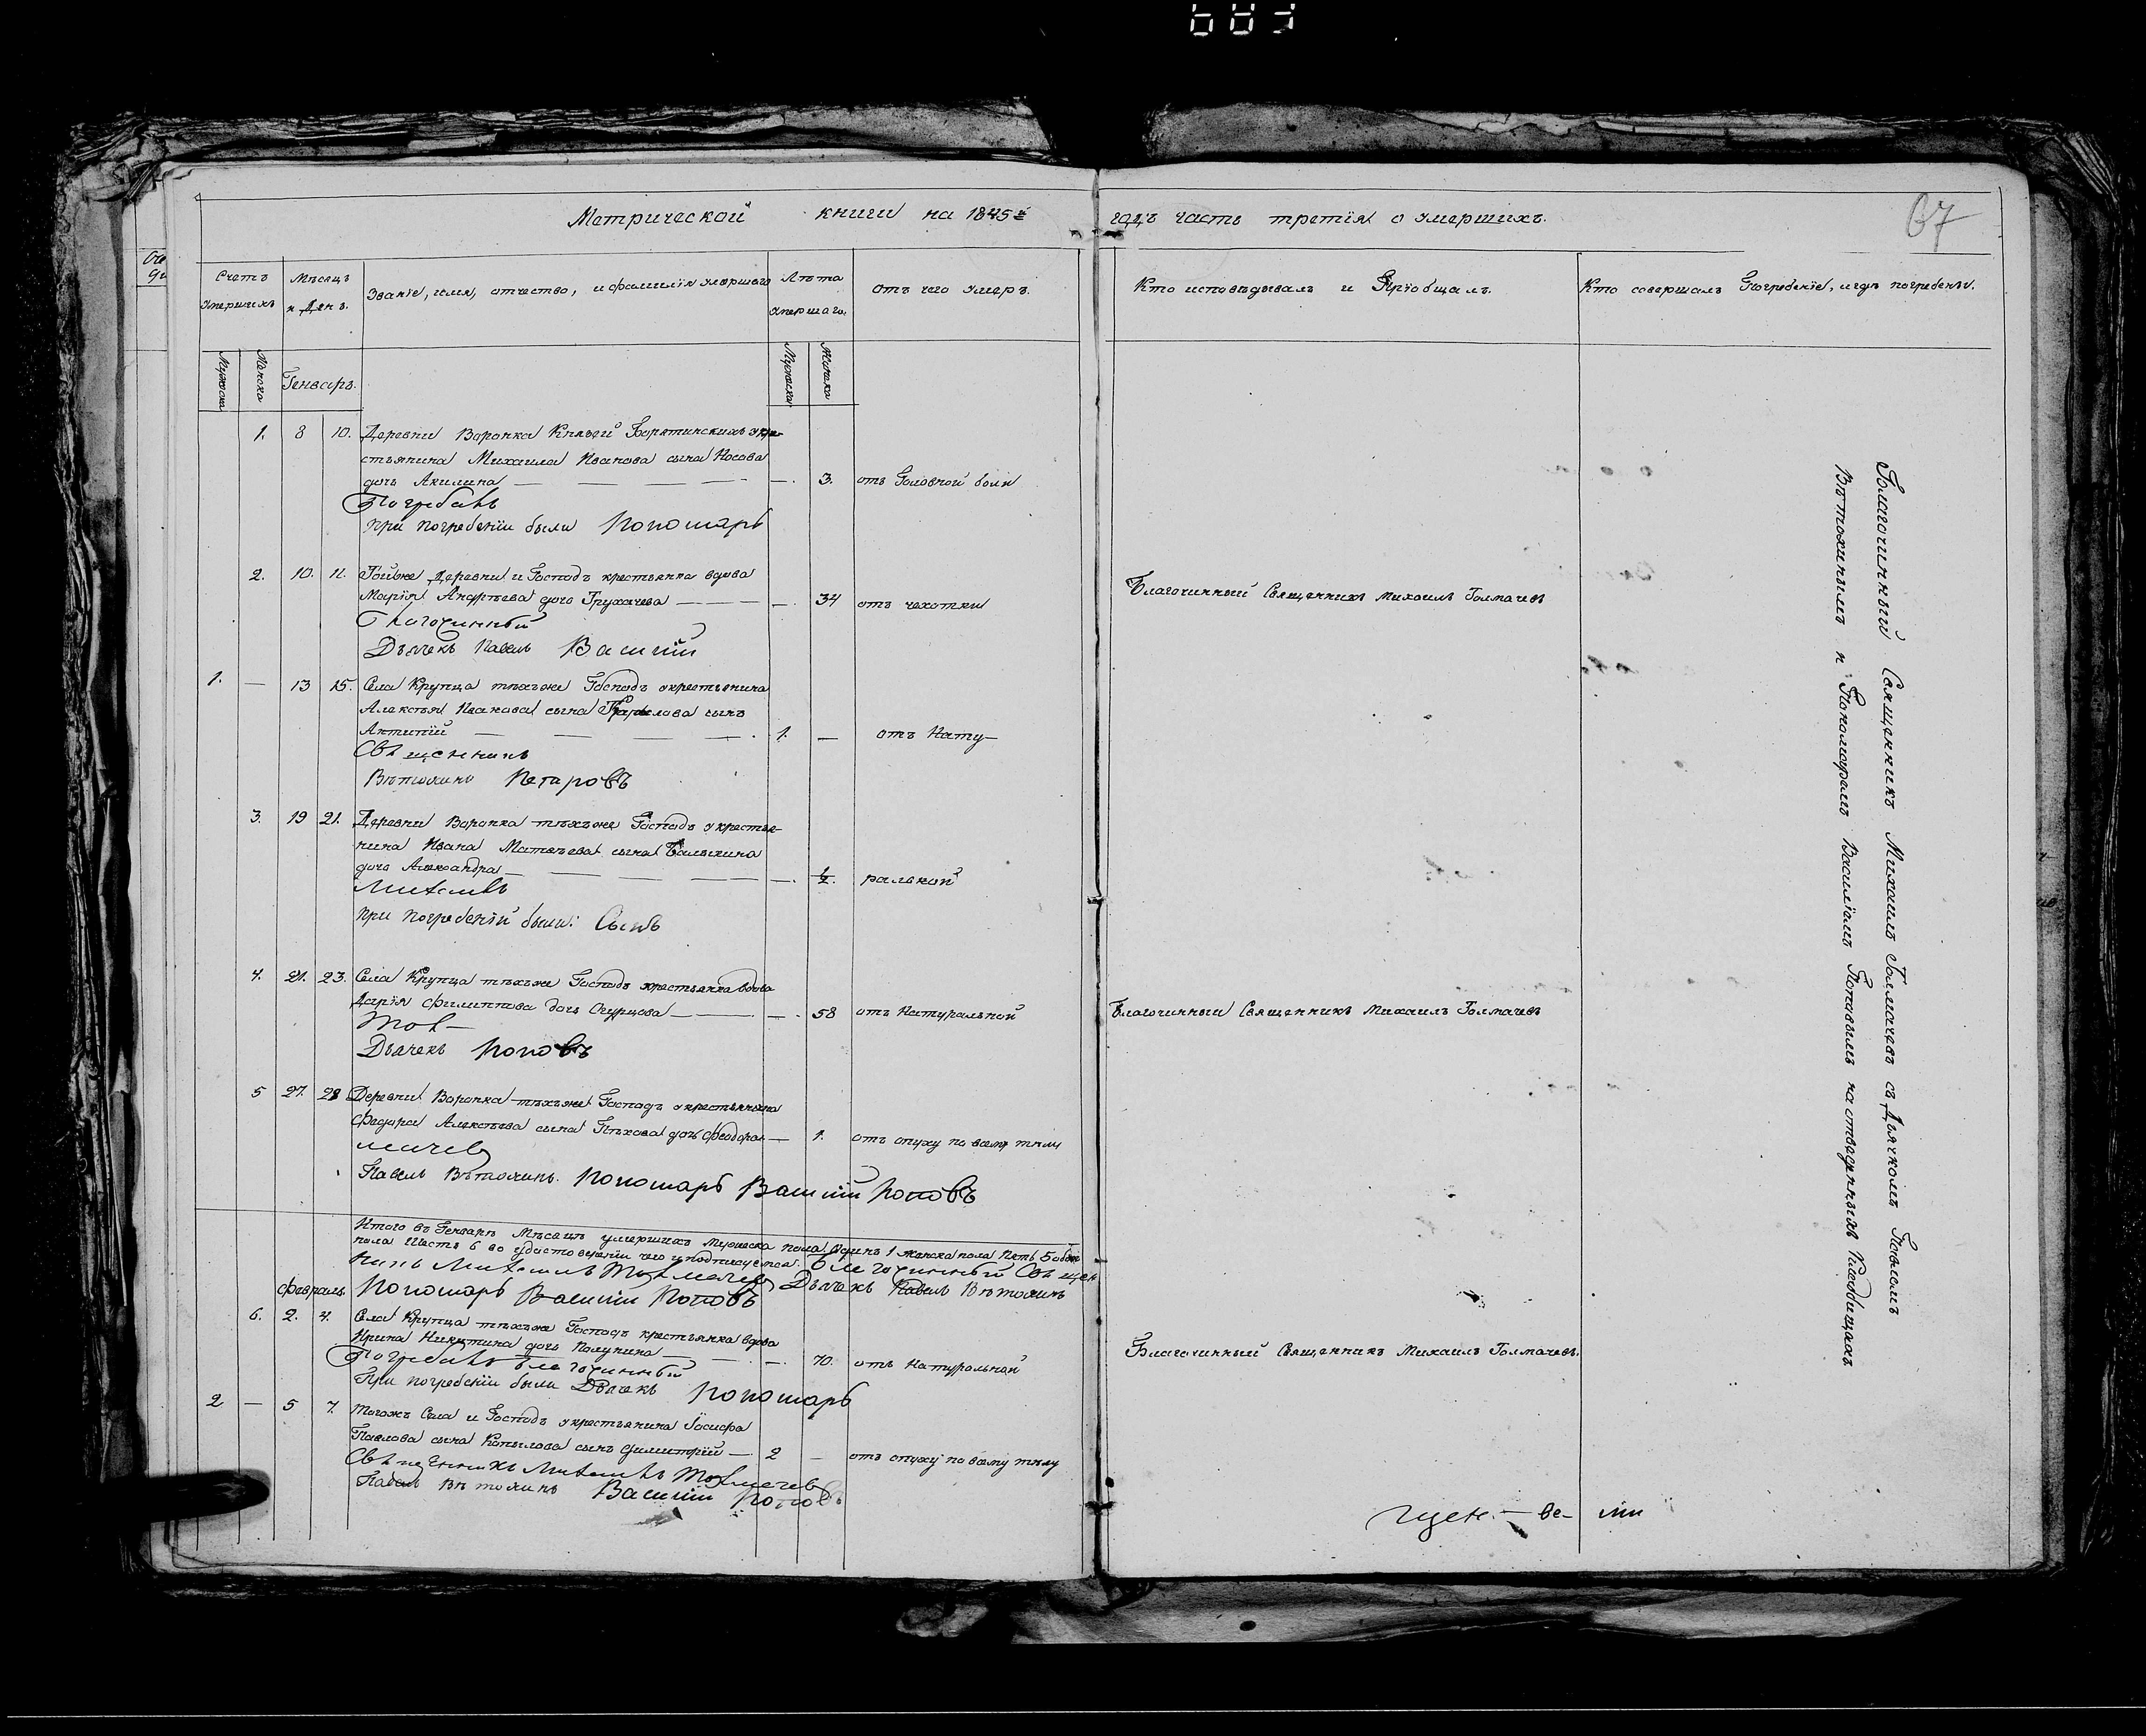 Метрической книги на 1845й годъ часть третія о умершихъ.
67
Счетъ умершихъ
Мѣсяцъ и День.
Званіе, имя, отчество, и фамилія умершаго
Лѣта умершаго.
отъ чего умеръ.
Кто исповѣдывалъ и Пріобщалъ.
Кто совершалъ Погребеніе, и гдѣ погребены.
Мужеска
Женска
Генварь.
Мужеска
Женска
1. 8 10. Деревни Воронка Князей Борятинскихъ у кре-
стьянина Михаила Иванова сына Носова
дочь Акилина — — — — — 3. отъ Головной боли
Погребалъ
при погребеніи были Пономарь
2. 10. 11. Тойже Деревни и Господъ крестьянка вдова
Марія Андреева дочь Трухачева — — — — 34 отъ чахотки
Благочинный Священникъ Михаилъ Толмачевъ
Благочинный
Дьячекъ Павелъ Василій
1. — 13 15. Села Крупца тѣхъже Господъ у крестьянина
Алексѣя Иванова сына сынъ
Антипій — — — — 1. — отъ Нату-
Священникъ
Вѣтохинъ Петровъ
3. 19 21. Деревни Воронка тѣхъже Господъ у крестья-
нина Ивана Матвѣева сына
дочь Александра — — — — — ½. ральной
Михаилъ
при погребеніи были: Сынъ
4. 21. 23. Села Крупца тѣхъже Господъ крестьянка вдова
Дарія Филиппова дочь Огурцова — — — 58 отъ Натуральной
Благочинный Священникъ Михаилъ Толмачевъ
Тол-
Дьячекъ Поповъ
5 27. 28 Деревни Воронка тѣхъже Господъ у крестьянина
Федора Алексѣева сына Пѣхова дочь Феодора — 1. отъ опуху по всему тѣлу
мачевъ
Павелъ Вѣтохинъ. Пономарь Василій Поповъ
Итого въ Генварѣ Мѣсяцѣ умершихъ Мужеска пола Одинъ 1 женска пола Пять 5 обоего
пола Шесть 6 во удостовѣреніи чего и подписуемся. Благочинный Священ-
никъ Михаилъ Толмачевъ Дьячекъ Павелъ Вѣтохинъ
Февраль. Пономарь Василій Поповъ
6. 2. 4. Села Крупца тѣхъже Господъ крестьянка вдова
Ирина Никитина дочь Полунина — — — 70. отъ Натуральной
Благочинный Священникъ Михаилъ Толмачевъ.
Погребалъ Благочинный
При погребеніи были Дьячекъ Пономарь
2 — 5 7. Тогожъ Села и Господъ у крестьянина Іосифа
Павлова сына Копылова сынъ Димитрій — 2 — отъ опуху по всему тѣлу
Священникъ Михаилъ Толмачевъ
Павелъ Вѣтохинъ Василій Поповъ
Благочинный Священникъ Михаилъ Толмачевъ съ Дьячкомъ Павломъ
Вѣтохинымъ и Пономаремъ Василіемъ Поповымъ на отведенныхъ Кладбищахъ
щен. — ве — лъ